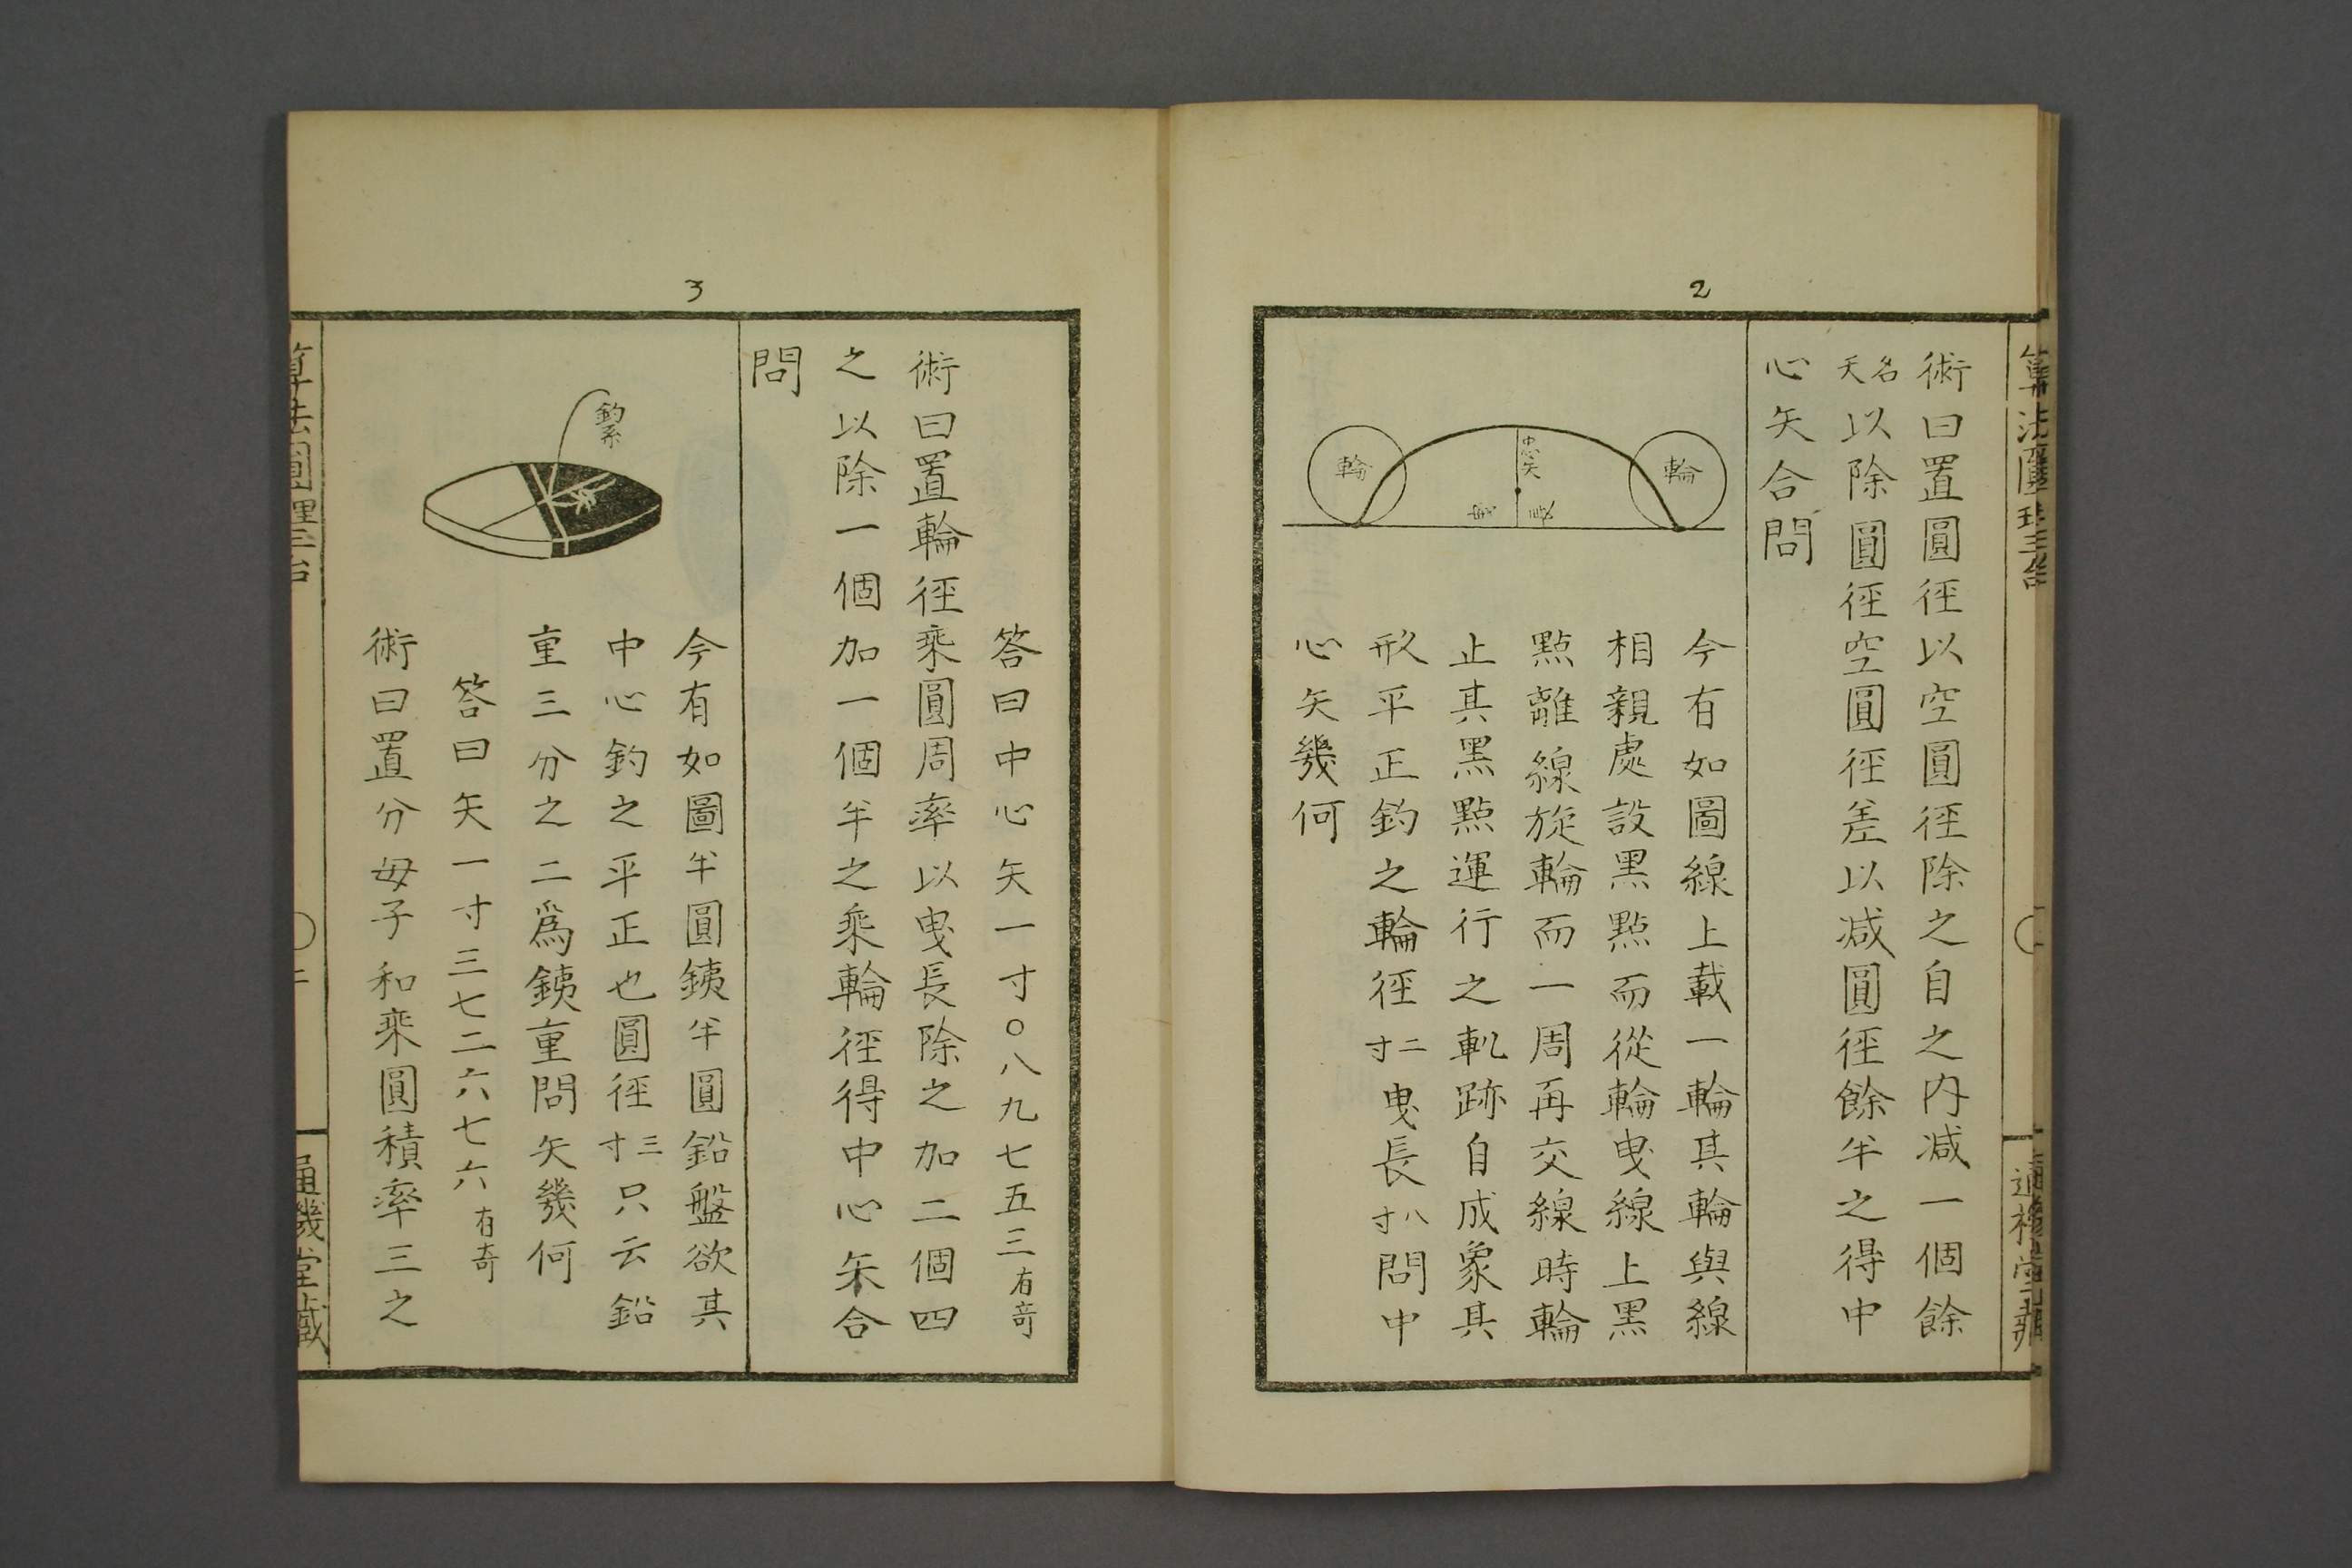 2
術曰置圓徑以空圓徑除之自之内减一個餘
名天以除圓徑空圓徑差以减圓徑餘半之得中
心矢合問
輪
中心矢
輪
今有如圖線上載一輪其輪與線
相親處設黑點而從輪曳線上黑
點離線旋輪而一周再交線時輪
止其黑點運行之軌跡自成象其
形平正釣之輪徑二寸曳長八寸問中
心矢幾何
3
答曰中心矢一寸〇八九七五三有奇
術曰置輪徑乘圓周率以曳長除之加二個四
之以除一個加一個半之乘輪徑得中心矢合
問
今有如圖半圓銕半圓鉛盤欲其
中心釣之平正也圓徑三寸只云鉛
重三分之二爲銕重問矢幾何
答曰矢一寸三七二六七六有奇
術曰置分母子和乘圓積率三之
算法圓理三台
通機堂藏